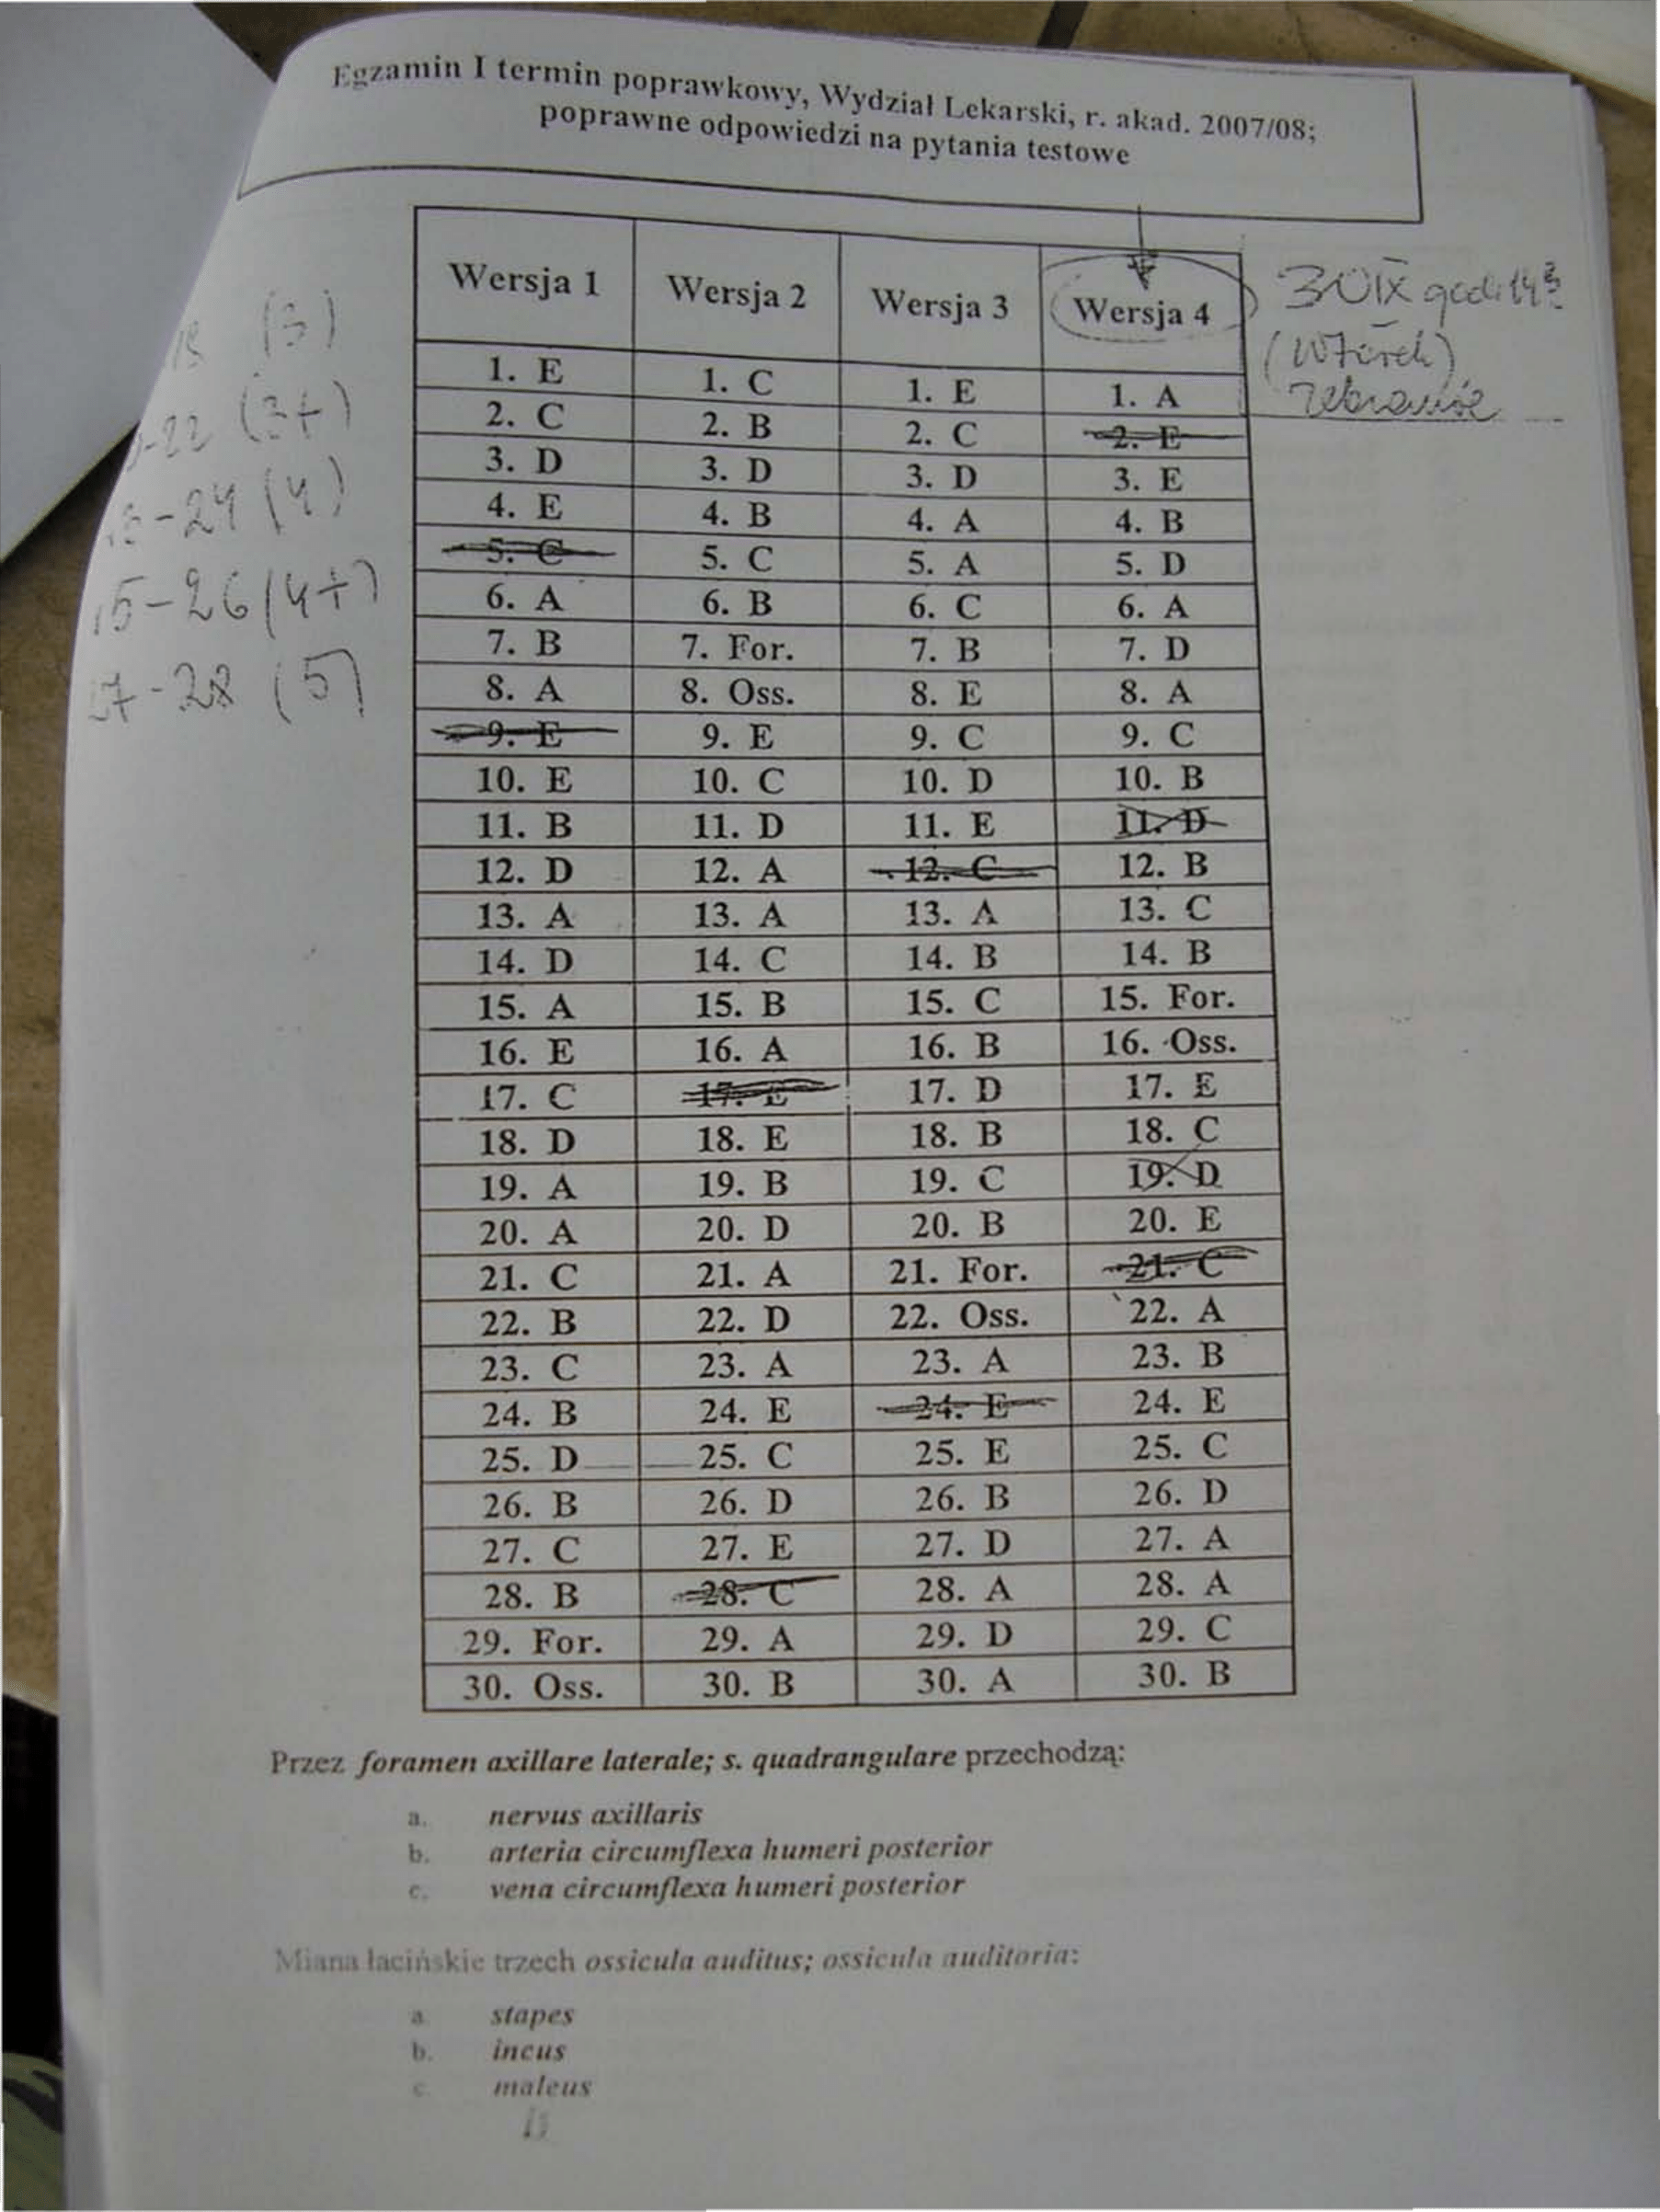 Egzamin I termin poprawkowy, Wydział Lekarski, r. akad. 2007/08;
poprawne odpowiedzi na pytania testowe
Wersja 1 Wersja 2 Wersja 3 Wersja 4
30 IX godz 14
(wtorek)
zebranie
(3)
-22 (3+)
-24 (4)
25-26 (4+)
27-28 (5)
1. E 1. C 1. E 1. A
2. C 2. B 2. C 2. E
3. D 3. D 3. D 3. E
4. E 4. B 4. A 4. B
5. C 5. C 5. A 5. D
6. A 6. B 6. C 6. A
7. B 7. For. 7. B 7. D
8. A 8. Oss. 8. E 8. A
9. E 9. E 9. C 9. C
10. E 10. C 10. D 10. B
11. B 11. D 11. E 11. D
12. D 12. A 12. C 12. B
13. A 13. A 13. A 13. C
14. D 14. C 14. B 14. B
15. A 15. B 15. C 15. For.
16. E 16. A 16. B 16. Oss.
17. C 17. E 17. D 17. E
18. D 18. E 18. B 18. C
19. A 19. B 19. C 19. D
20. A 20. D 20. B 20. E
21. C 21. A 21. For. 21. C
22. B 22. D 22. Oss. 22. A
23. C 23. A 23. A 23. B
24. B 24. E 24. E 24. E
25. D 25. C 25. E 25. C
26. B 26. D 26. B 26. D
27. C 27. E 27. D 27. A
28. B 28. C 28. A 28. A
29. For. 29. A 29. D 29. C
30. Oss. 30. B 30. A 30. B
Przez foramen axillare laterale; s. quadrangulare przechodzą:
a. nervus axillaris
b. arteria circumflexa humeri posterior
c. vena circumflexa humeri posterior
Miana łacińskie trzech ossicula auditus; ossicula auditoria:
a. stapes
b. incus
c. maleus